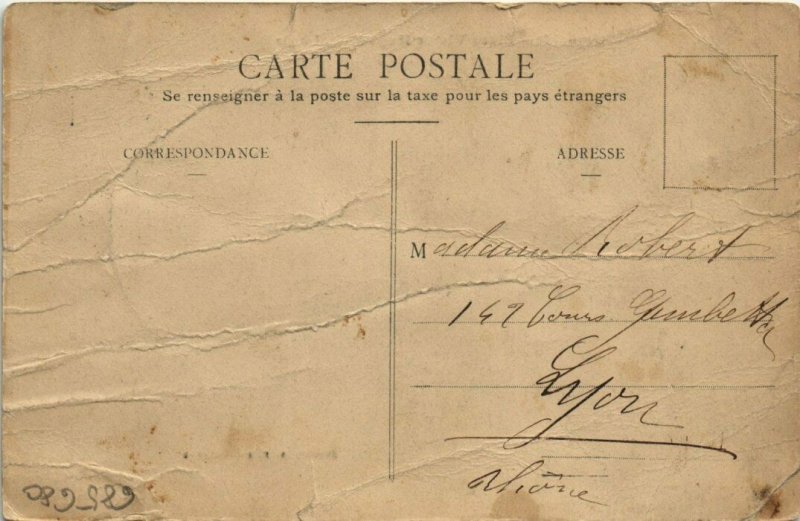 CARTE POSTALE
Se renseigner à la poste sur la taxe pour les pays étrangers
CORRESPONDANCE
ADRESSE
Madame Robert
142 Cours Gambetta
Lyon
Rhône